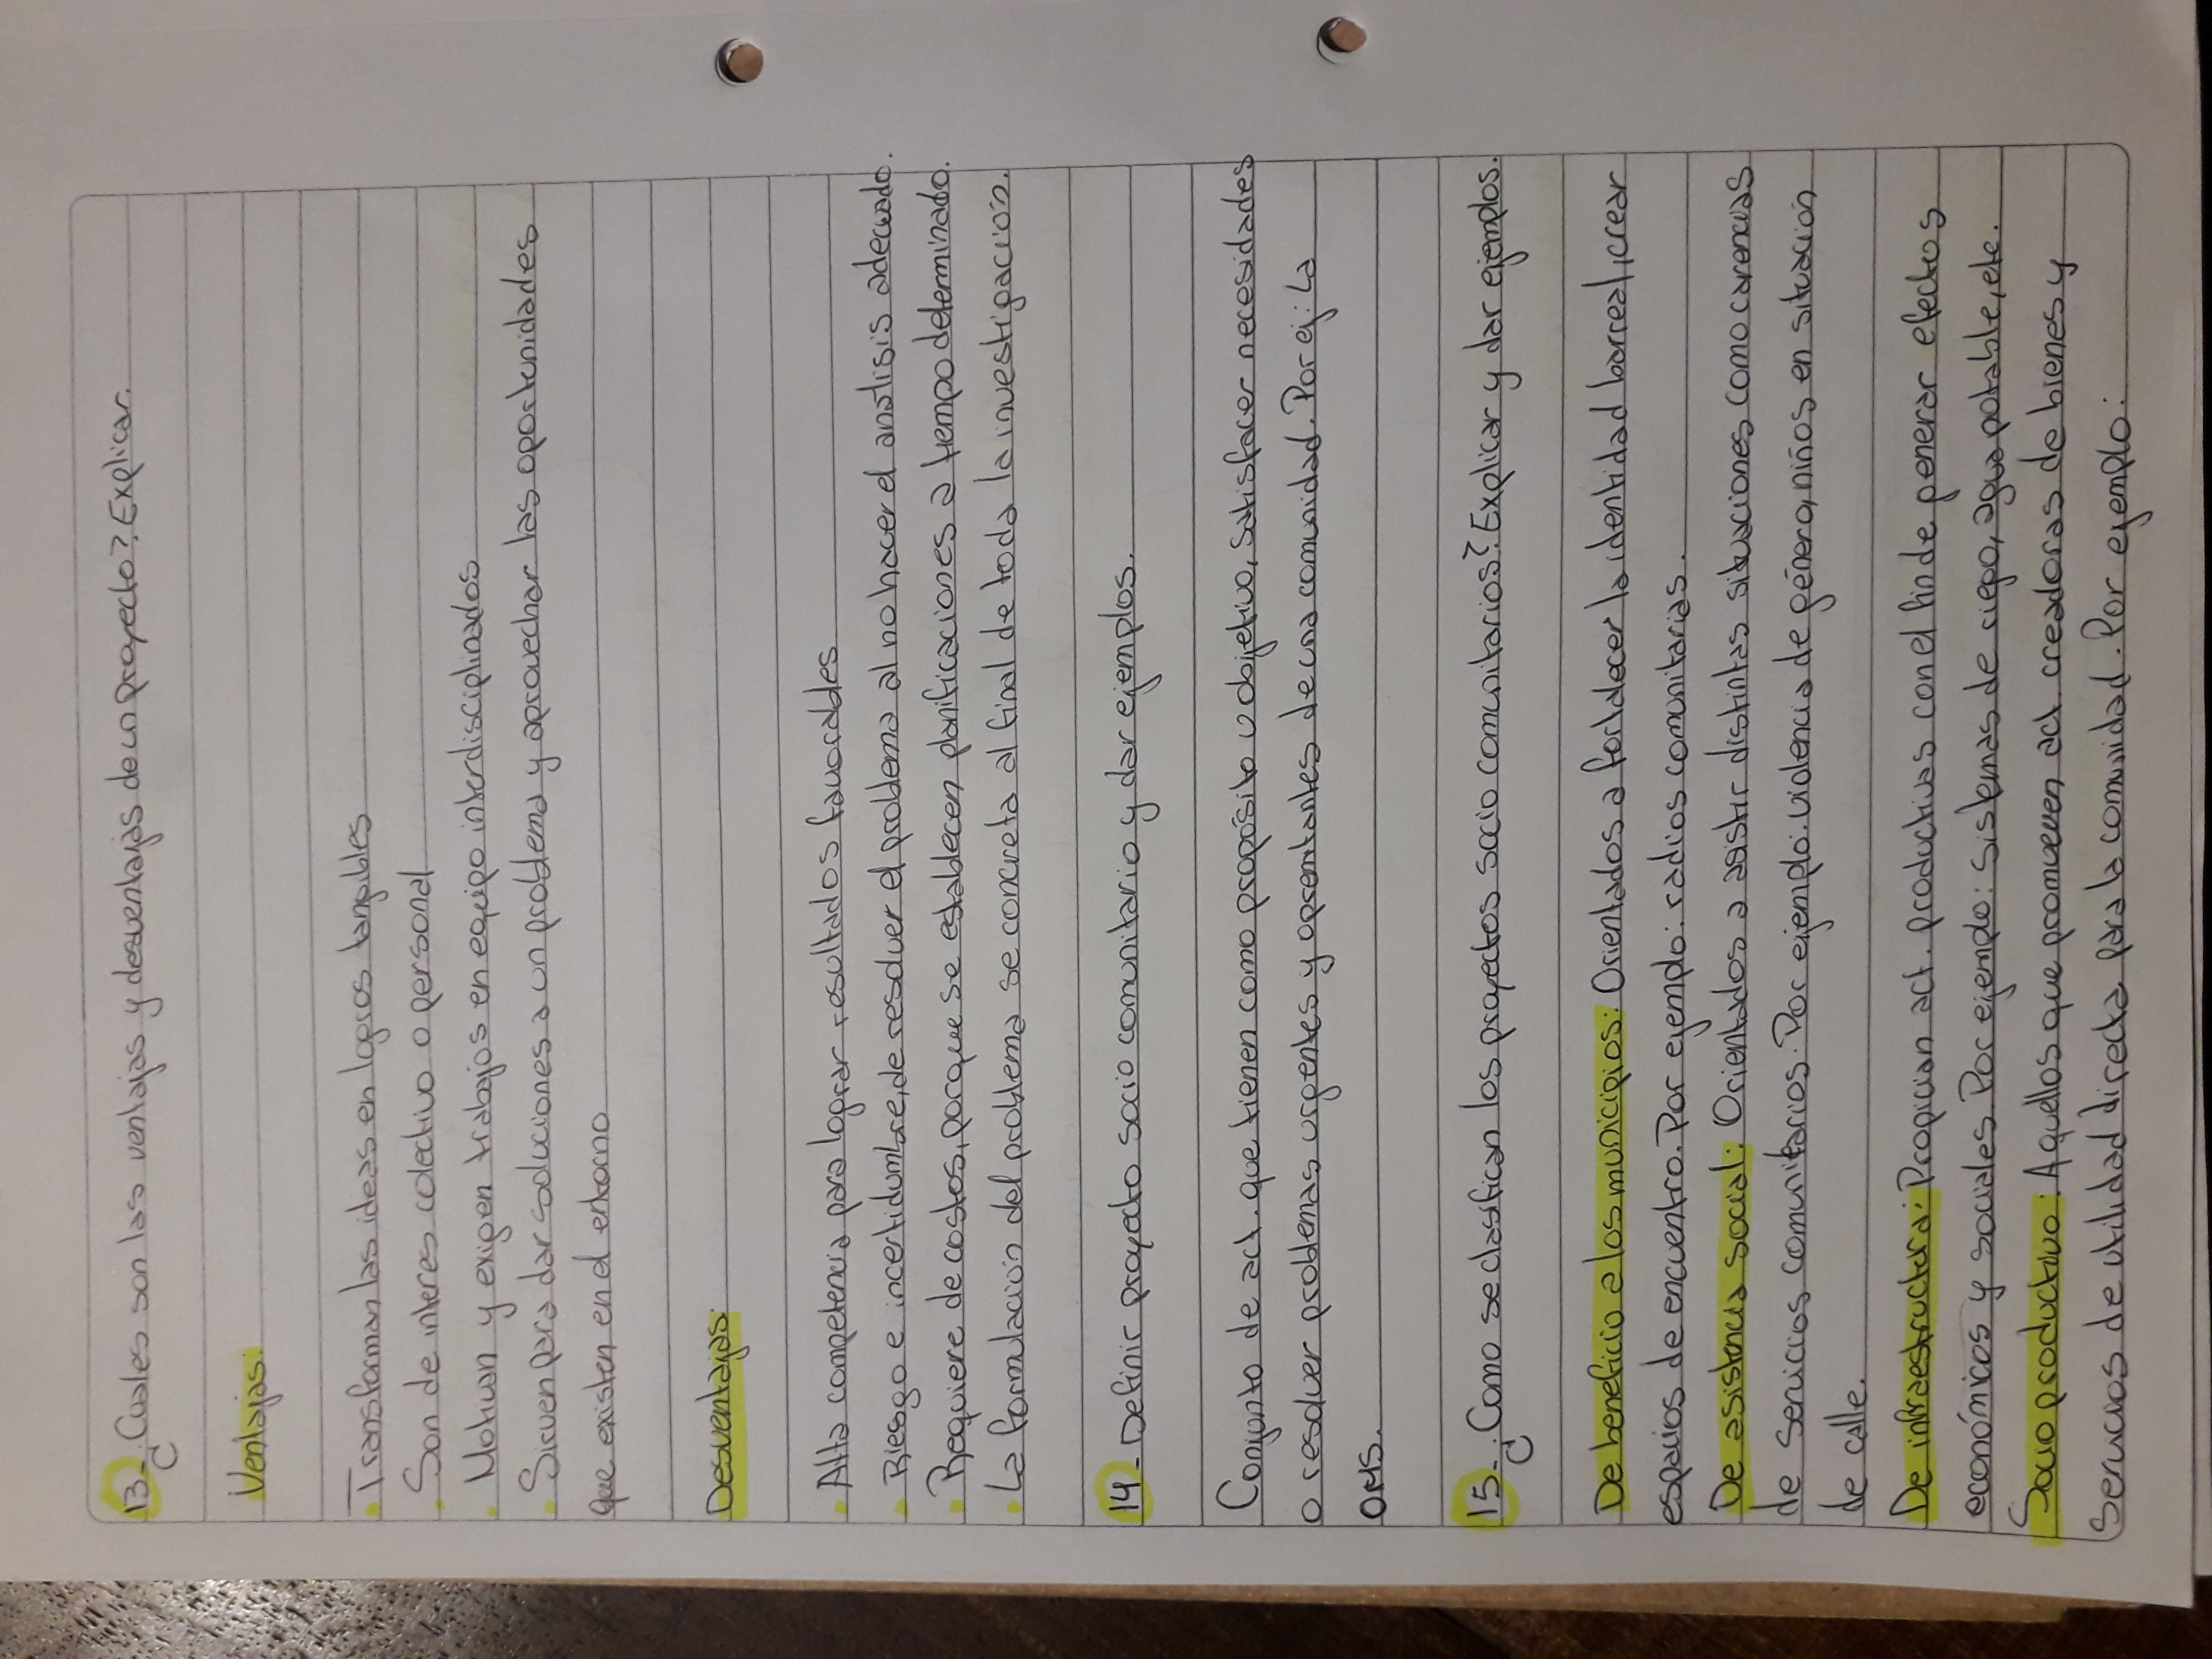 13-¿Cuales son las ventajas y desventajas de un proyecto? Explicar.
Ventajas:
• Transforman las ideas en logros tangibles
• Son de interes colectivo o personal
• Motivan y exigen trabajos en equipo interdisciplinados
• Sirven para dar soluciones a un problema y aprovechar las oportunidades
que existen en el entorno
Desventajas:
• Alta competencia para lograr resultados favorables
• Riesgo e incertidumbre, de resolver el problema al no hacer el analisis adecuado.
• Requiere de costos, porque se establecen planificaciones a tiempo determinado.
• La formulación del problema se concreta al final de toda la investigación.
14-Definir proyecto socio comunitario y dar ejemplos.
Conjunto de act. que tienen como proposito u objetivo, satisfacer necesidades
o resolver problemas urgentes y apremiantes de una comunidad. Por ej: La
OMS.
15-¿Como se clasifican los proyectos socio comunitarios? Explicar y dar ejemplos.
De beneficio a los municipios: Orientados a fortalecer la identidad barreal, crear
espacios de encuentro. Por ejemplo: radios comunitarias.
De asistencia social: Orientados a asistir distintas situaciones como carencias
de servicios comunitarios. Por ejemplo: violencia de género, niños en situación
de calle.
De infraestructura: Propician act. productivas con el fin de generar efectos
económicos y sociales. Por ejemplo: Sistemas de riego, agua potable, etc.
Socio productivo: Aquellos que promueven act. creadoras de bienes y
Servicios de utilidad directa para la comunidad. Por ejemplo: